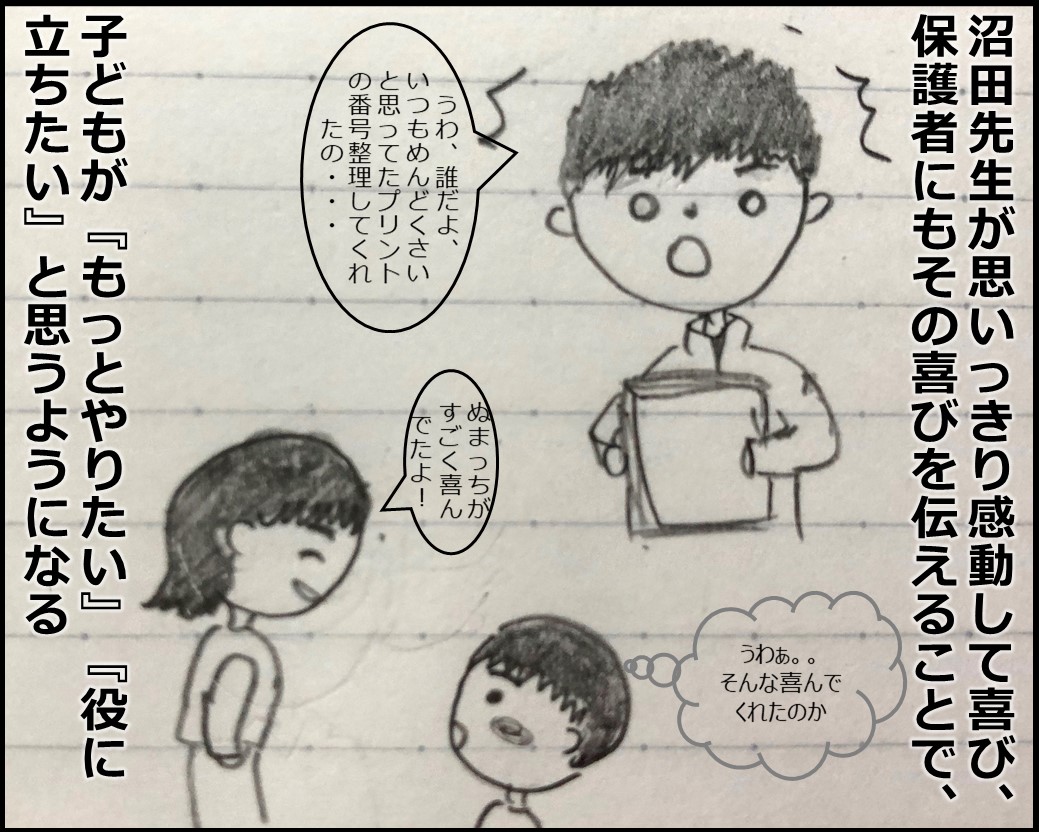 沼田先生が思いっきり感動して喜び、
保護者にもその喜びを伝えることで、
うわ、誰だよ、
いつもめんどくさい
と思ってたプリント
の番号整理してくれ
たの・・・
ぬまっちが
すごく喜ん
でたよ！
うわぁ。。
そんな喜んで
くれたのか
子どもが『もっとやりたい』『役に
立ちたい』と思うようになる